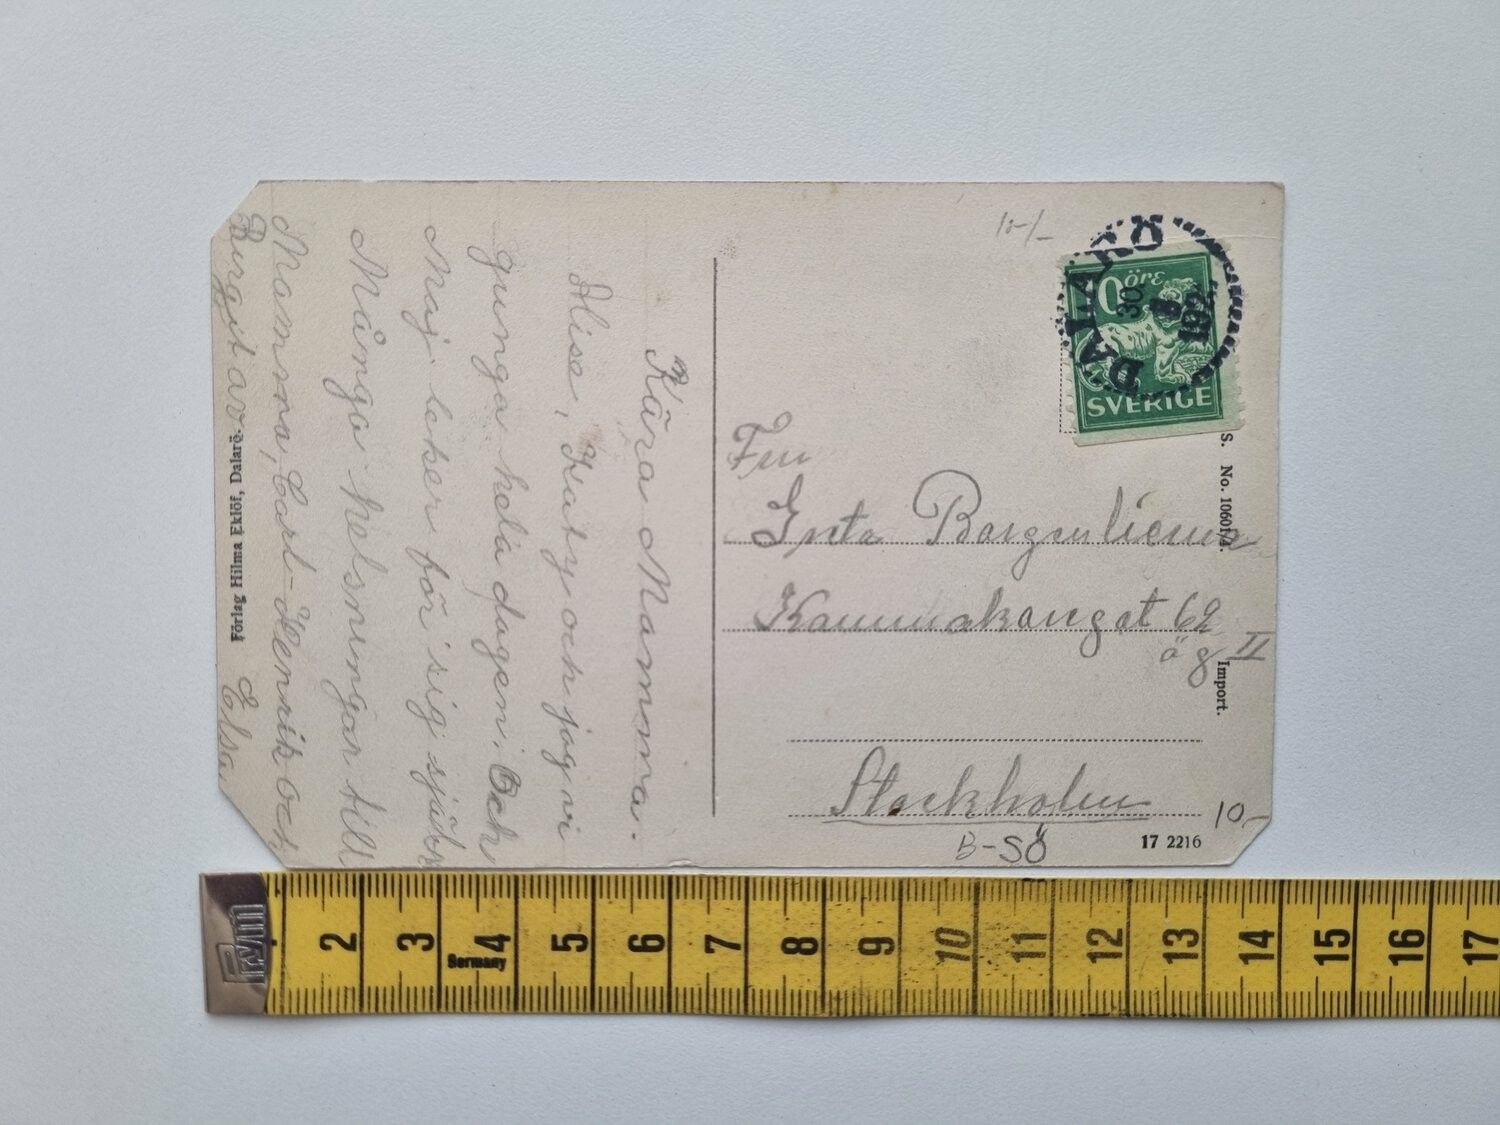 Kära Mamma.
Alise, Katy och jag vi
gunga hela dagen. Och
Maj leker för sig själv
Många helsningar till
Mamma, Carl-Henrik och
Birgit av
Elsa.
Förlag Hilma Eklöf, Dalarö.
10-/-
DALARÖ
30
8
192
0 öre
SVERIGE
Fru
Greta
Kammakargat 62
ög II
Stockholm
B-SÖ
10,-
17 2216
S. No. 10601/4.
Import.
Prym
2 3 4 5 6 7 8 9 10 11 12 13 14 15 16 17
Germany